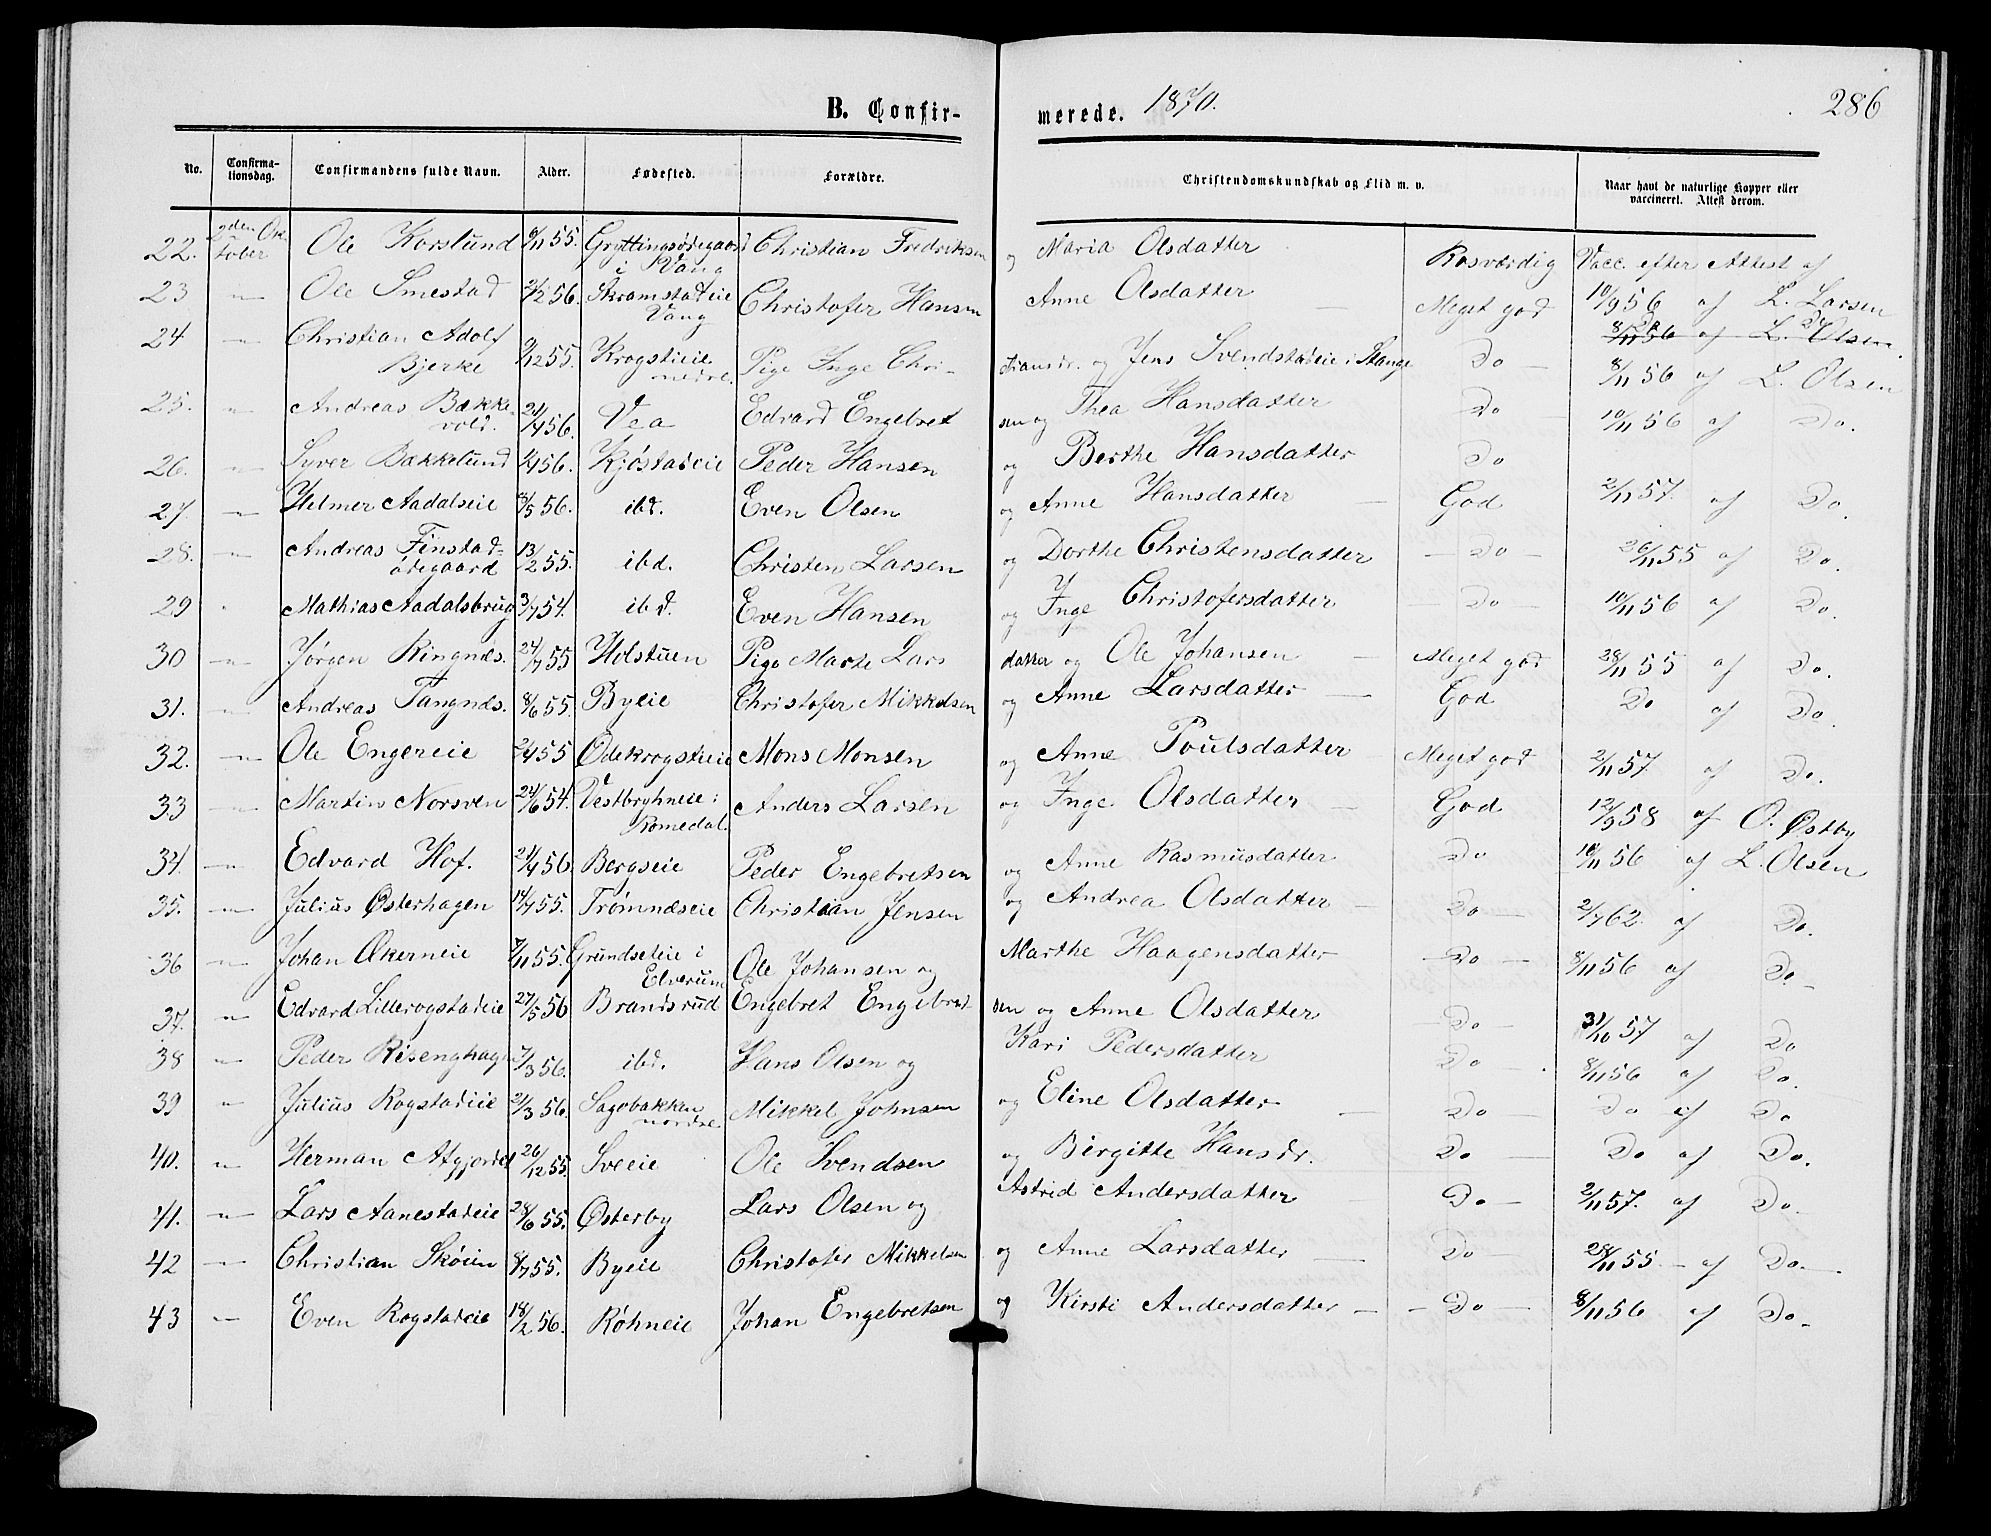 B. Confir-
merede. 1870.
286
No.
Confirma-
tionsdag.
Confirmandens fulde Navn.
Alder.
Fødested.
Forældre.
Christendomskundskab og Flid m. v.
Naar havt de naturlige Kopper eller
vaccineret. Attest derom.
22. 2den Oktober Ole Korslund 6/11 55. Gryttingsødegaard i Vang Christian Fredriksen og Maria Olsdatter Rosværdig Vacc. efter Attest af
23 — " — Ole Smestad 2/2 56. Skramstadeie Vang Christofer Hansen Anne Olsdatter — Meget god 10/9 56 af L. Larsen
8/11 56 af L. Olsen
24 — " — Christian Adolf Bjerke 9/12 55. Krogstieie nedre. Pige Inge Christiansdr. og Jens Svendstadeie i Stange Do — 8/11 56 af L. Olsen
25. — " — Andreas Bækkevold. 21/4 56. Vea Edvard Engebretsen og Thea Hansdatter Do 10/11 56 af Do.
26. — " — Syver Bækkelund 1/4 56. Kjøstadeie Peder Hansen og Berthe Hansdatter Do
27. — " — Helmer Aadalseie 8/5 56. ibd. Even Olsen og Anne Hansdatter — God 2/11 57. af Do.
28. — " — Andreas Finstad-ødegaard 13/2 55. ibd. Christen Larsen og Dorthe Christensdatter — Do — 26/11 55 af Do.
29 " Mathias Aadalsbrug 3/7 54. ibd. Even Hansen og Inge Christofersdatter — Do — 10/11 56 af Do.
30 — " — Jørgen Ringnes. 24/7 55 Holstuen Pige Marte Larsdatter og Ole Johansen — Meget god 28/11 55 af Do.
31. — " — Andreas Tangnes. 8/6 55. Byeie Christofer Mikkelsen og Anne Larsdatter — God Do af Do.
32. — " — Ole Engereie 2/4 55 Ødekrogstieie Mons Monsen og Anne Poulsdatter Meget god 2/11 57. af Do.
33 — " — Martin Norsven 24/6 54. Vestbryhneie i Romedal. Anders Larsen og Inge Olsdatter — God 12/9 58 af O. Østby
34. — " — Edvard Hof. 21/4 56 Bergseie Peder Engebretsen og Anne Rasmusdatter Do 10/11 56 af L. Olsen
35. — " — Julius Østerhagen 14/4 55. Trømnæseie Christian Jensen og Andrea Olsdatter — Do — 2/7 62. af Do.
36 — " — Johan Økerneie 7/11 55. Grundseteie i Elverum Ole Johansen og Marthe Haagensdatter — Do — 8/11 56 af Do.
37. — " Edvard Lillerogstadeie 27/5 56 Brandsrud Engebret Engebretsen og Anne Olsdatter — Do — 31/10 57 af Do
38 " Peder Risenghagen 7/3 56. ibd. Hans Olsen og Kari Pedersdatter Do — . 8/11 56 af Do.
39 " Julius Rogstadeie 21/3 56. Sagbakken nordre Mikkel Johnsen og Eline Olsdatter — Do — Do af Do
40. " Herman Afgjordet 26/12 55. Sveeie Ole Svendsen og Birgitte Hansdr. Do — Do af Do.
41. — " — Lars Aanestadeie 28/6 55. Østerby Lars Olsen og Astrid Andersdatter — Do — 2/11 57. af Do.
42 — " — Christian Skøien 8/7 55. Byeie Christofer Mikkelsen og Anne Larsdatter — Do — 28/11 55. — af Do. —
43 — " — Even Rogstadeie 18/2 56. Røhneie Johan Engebretsen og Kirsti Andersdatter — — Do — 8/11 56 af Do.